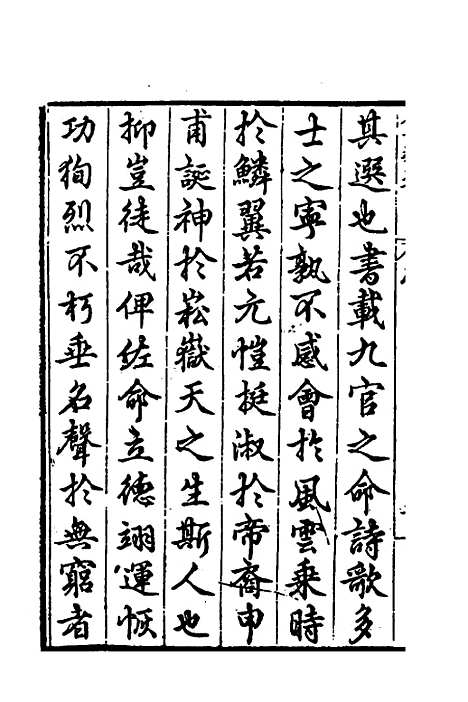 其選也書載九官之命詩歌多
士之寧孰不感會於風雲乗時
於鱗翼若元愷挺淑於帝裔申
甫誕神於崧嶽天之生斯人也
抑豈徒哉俾佐命立德翊運恢
功狥烈不朽垂名聲於無窮者